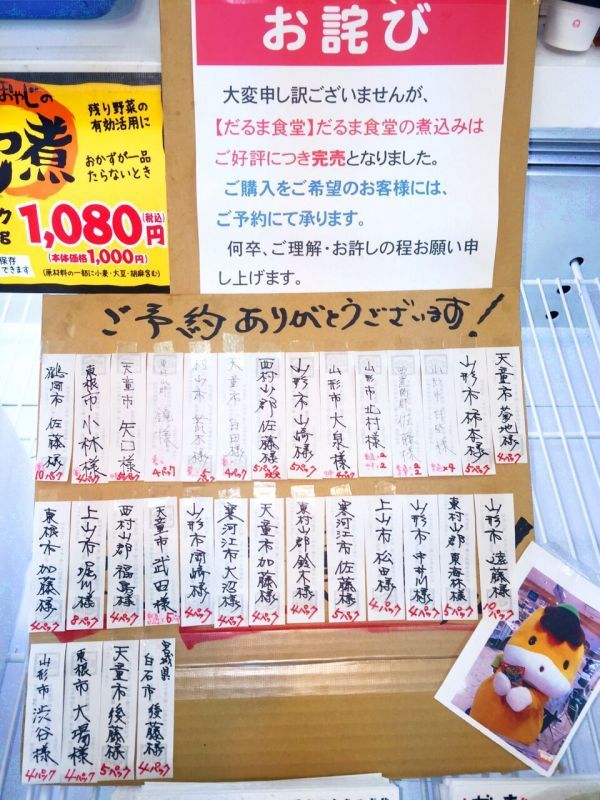 お詫び
大変申し訳ございませんが、
【だるま食堂】だるま食堂の煮込みは
ご好評につき完売となりました。
ご購入をご希望のお客様には、
ご予約にて承ります。
何卒、ご理解・お許しの程お願い申
し上げます。
おやじの
煮
残り野菜の
有効活用に
おかずが一品
たらないとき
1,080円(税込)
(本体価格1,000円)
保存
できます
(原材料の一部に小麦・大豆・胡麻含む)
ご予約ありがとうございます!
天童市 菊地様 4パック
山形市 柿本様 5パック
山形市 北村様
山形市 大泉様 4パック
山形市 山崎様 5パック
西村山郡 佐藤様 5パック
天童市
4パック
5パック
4パック
天童市 矢口様
東根市 小林様 4パック
鶴岡市 佐藤様 10パック
山形市 遠藤様 10パック
東村山郡 東海林様 5パック
山形市 中井川様 4パック
上山市 松田様 4パック
寒河江市 佐藤様 5パック
東村山郡 鈴木様 4パック
天童市 加藤様 4パック
寒河江市 大沼様 4パック
山形市 岡崎様 4パック
天童市 武田様
西村山郡 福嶋様 4パック
上山市 堀川様 8パック
東根市 加藤様 4パック
宮城県 白石市 後藤様 4パック
天童市 後藤様 5パック
東根市 大場様 4パック
山形市 渋谷様 4パック